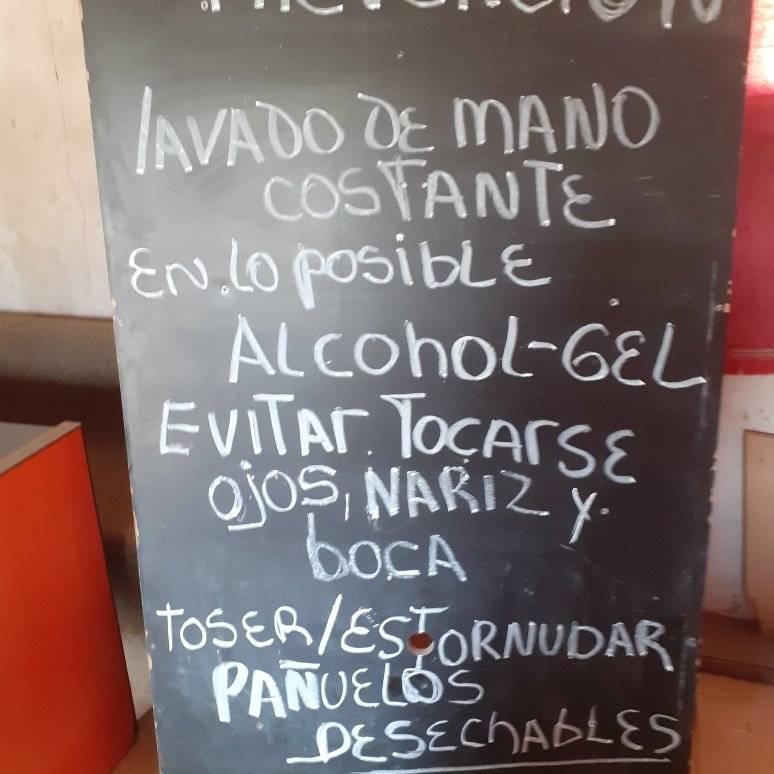 PREVENCIÓN
lAVADO DE MANO
COSTANTE
EN lo posiblE
ALCohoL-GEL
EVITAr TOCArSE
OjOS, NARIZ y
bOCA
TOSER/ESTORNUDAR
PAÑUELOS
DESEChAbLES